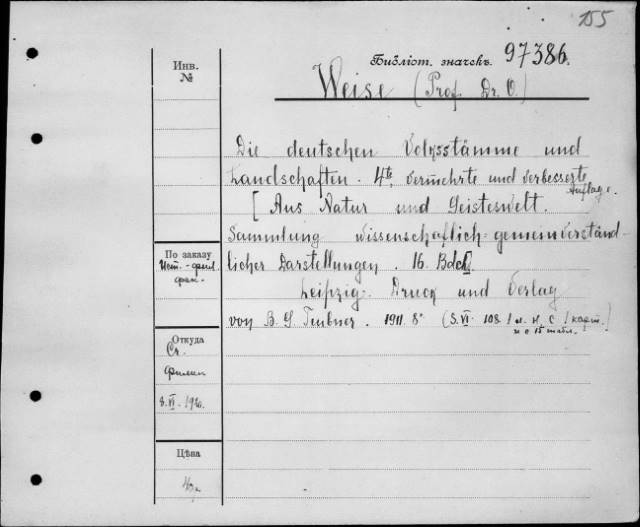 155
Библіот. значекъ 97386.
Инв.
№
Weise (Prof. Dr. O.)
Die deutschen Volksstämme und
Landschaften. 4te, vermehrte und verbesserte
Auflage.
[Aus Natur und Geisteswelt.
Sammlung wissenschaftlich-gemeinverständ-
licher Darstellungen. 16. Bdch].
Leipzig: Druck und Verlag
von B. G. Teubner. 1911. 8° (S. VI. 108. 1 м. н. с. 1 карт.
и с 15 табл.)
По заказу
Ист.-фил.
фак.
Откуда
Ст.
8.VI.
Цѣна